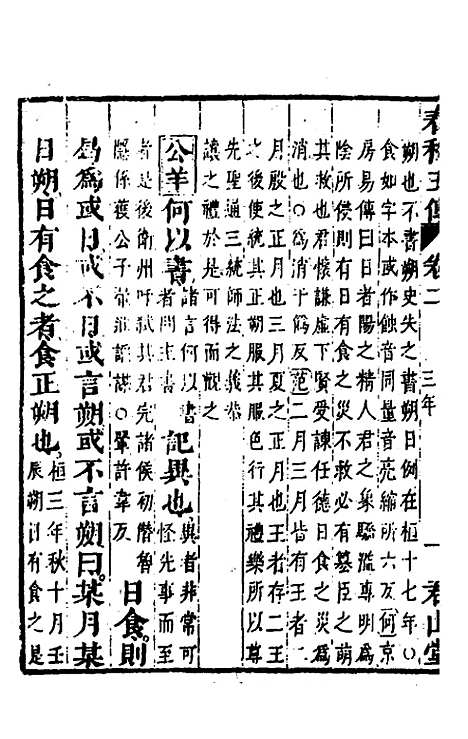 春秋五傳 卷二 三年 一 君山堂
朔也不書朔史失之書朔日例在桓十七年○
食如字本或作蝕音同量音亮縮所六反何京
房易傳曰日者陽之精人君之象驕溢專明爲
陰所侵則有日有食之災不救必有篡臣之萌
其救也君懷謙虛下賢受諫任德日食之災爲
消也○爲消于僞反范二月三月皆有王者二
月殷之正月也三月夏之正月也王者存二王
之後使統其正朔服其服色行其禮樂所以尊
先聖通三統師法之義恭
讓之禮於是可得而觀之
公羊何以書諸言何以書者問主書記異也異者非常可怪先事而至
者是後衛州吁弒其君完諸侯初僭魯
隱係獲公子翬進諂謀○翬許韋反日食則
曷爲或日或不日或言朔或不言朔曰某月某
日朔日有食之者食正朔也桓三年秋十月壬辰朔日有食之是